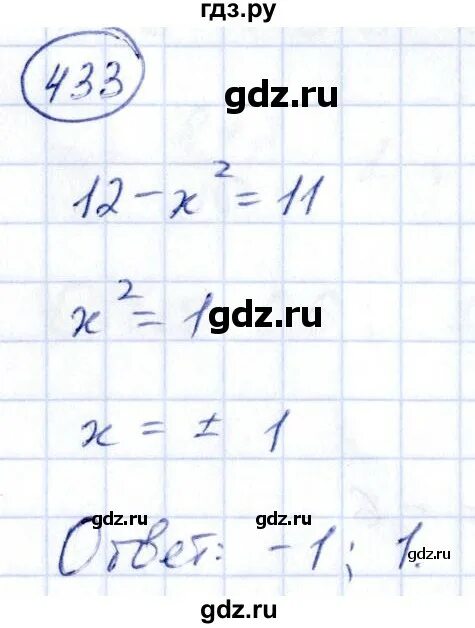 гдз.ру
433
gdz.ru
12 - x² = 11
x² = 1
gdz.ru
x = ± 1
gdz.ru gdz.ru
Ответ: -1; 1.
gdz.ru
gdz.ru